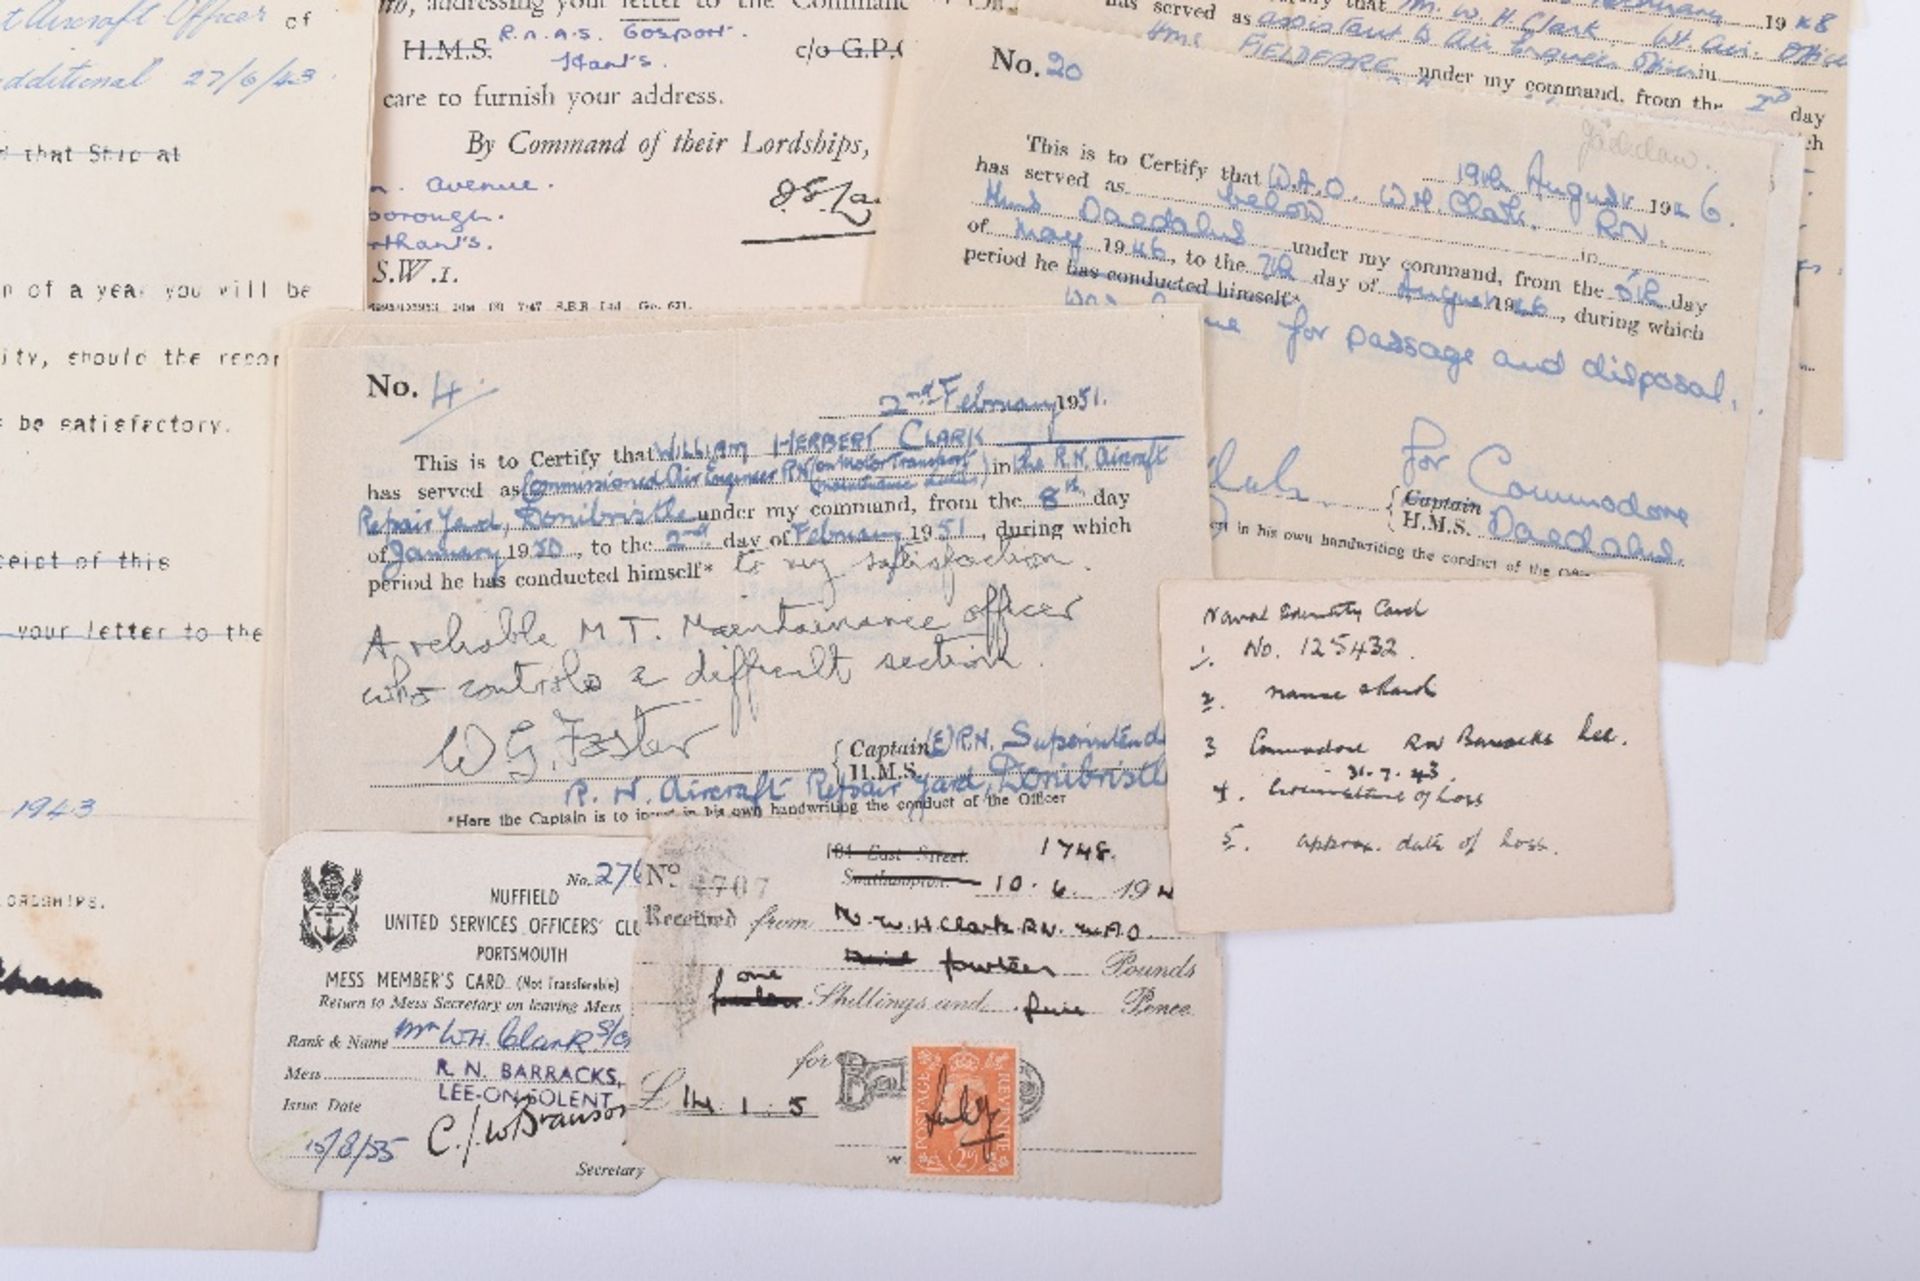 t Aircraft Officer of
dditional 27/6/43
d that Ship at
n of a year you will be
ity, should the repor
be satisfactory.
ceipt of this
your letter to the
1943
addressing your letter to the Comman
H.M.S. R.N.A.S. Gosport. c/o G.P.
Hants.
care to furnish your address.
By Command of their Lordships,
Avenue.
borough.
rthants.
S.W.1.
that Mr. W. H. Clark Wt. Air. Officer
1948
has served as assistant to Air Engineer Officer in
HMS FIELDFARE under my command, from the 2nd day
No. 20
19th August 1946.
This is to Certify that W.A.O. W.H. Clark. R.N.
has served as below in
HMS Daedalus under my command, from the 5th day
of May 1946, to the 7th day of August 1946, during which
period he has conducted himself*
for passage and disposal.
for Commodore
Captain
H.M.S. Daedalus.
in his own handwriting the conduct of the
No. 4
2nd February 1951.
This is to Certify that WILLIAM HERBERT CLARK
has served as Commissioned Air Engineer RN (on Motor Transport Maintenance duties) in the R.N. Aircraft
Repair Yard, Donibristle under my command, from the 8th day
of January 1950, to the 2nd day of February 1951, during which
period he has conducted himself* to my satisfaction.
A reliable M.T. Maintainance officer
who controls a difficult section.
W G Foster
Captain (E) R.N. Superintend
H.M.S.
R. N. Aircraft Repair Yard, Donibristle
*Here the Captain is to insert in his own handwriting the conduct of the Officer
Naval Identity Card
1. No. 125432.
2. name & rank
3 Commodore RN Barracks Lee.
31.7.43
4. Circumstance of loss
5. approx. date of loss.
No. 276
NUFFIELD
UNITED SERVICES OFFICERS' CLU
PORTSMOUTH
MESS MEMBER'S CARD (Not Transferable)
Return to Mess Secretary on leaving Mess
Rank & Name Mr W.H. Clark
Mess R. N. BARRACKS,
LEE-ON-SOLENT
Issue Date
15/8/55
Secretary
No 2707
101 East Street.
Southampton.
1748.
10.6. 194
Received from Mr. W H Clark RN. W.A.O.
fourteen Pounds
one Shillings and five Pence
for
£ 14 . 1 . 5
POSTAGE
REVENUE
2D